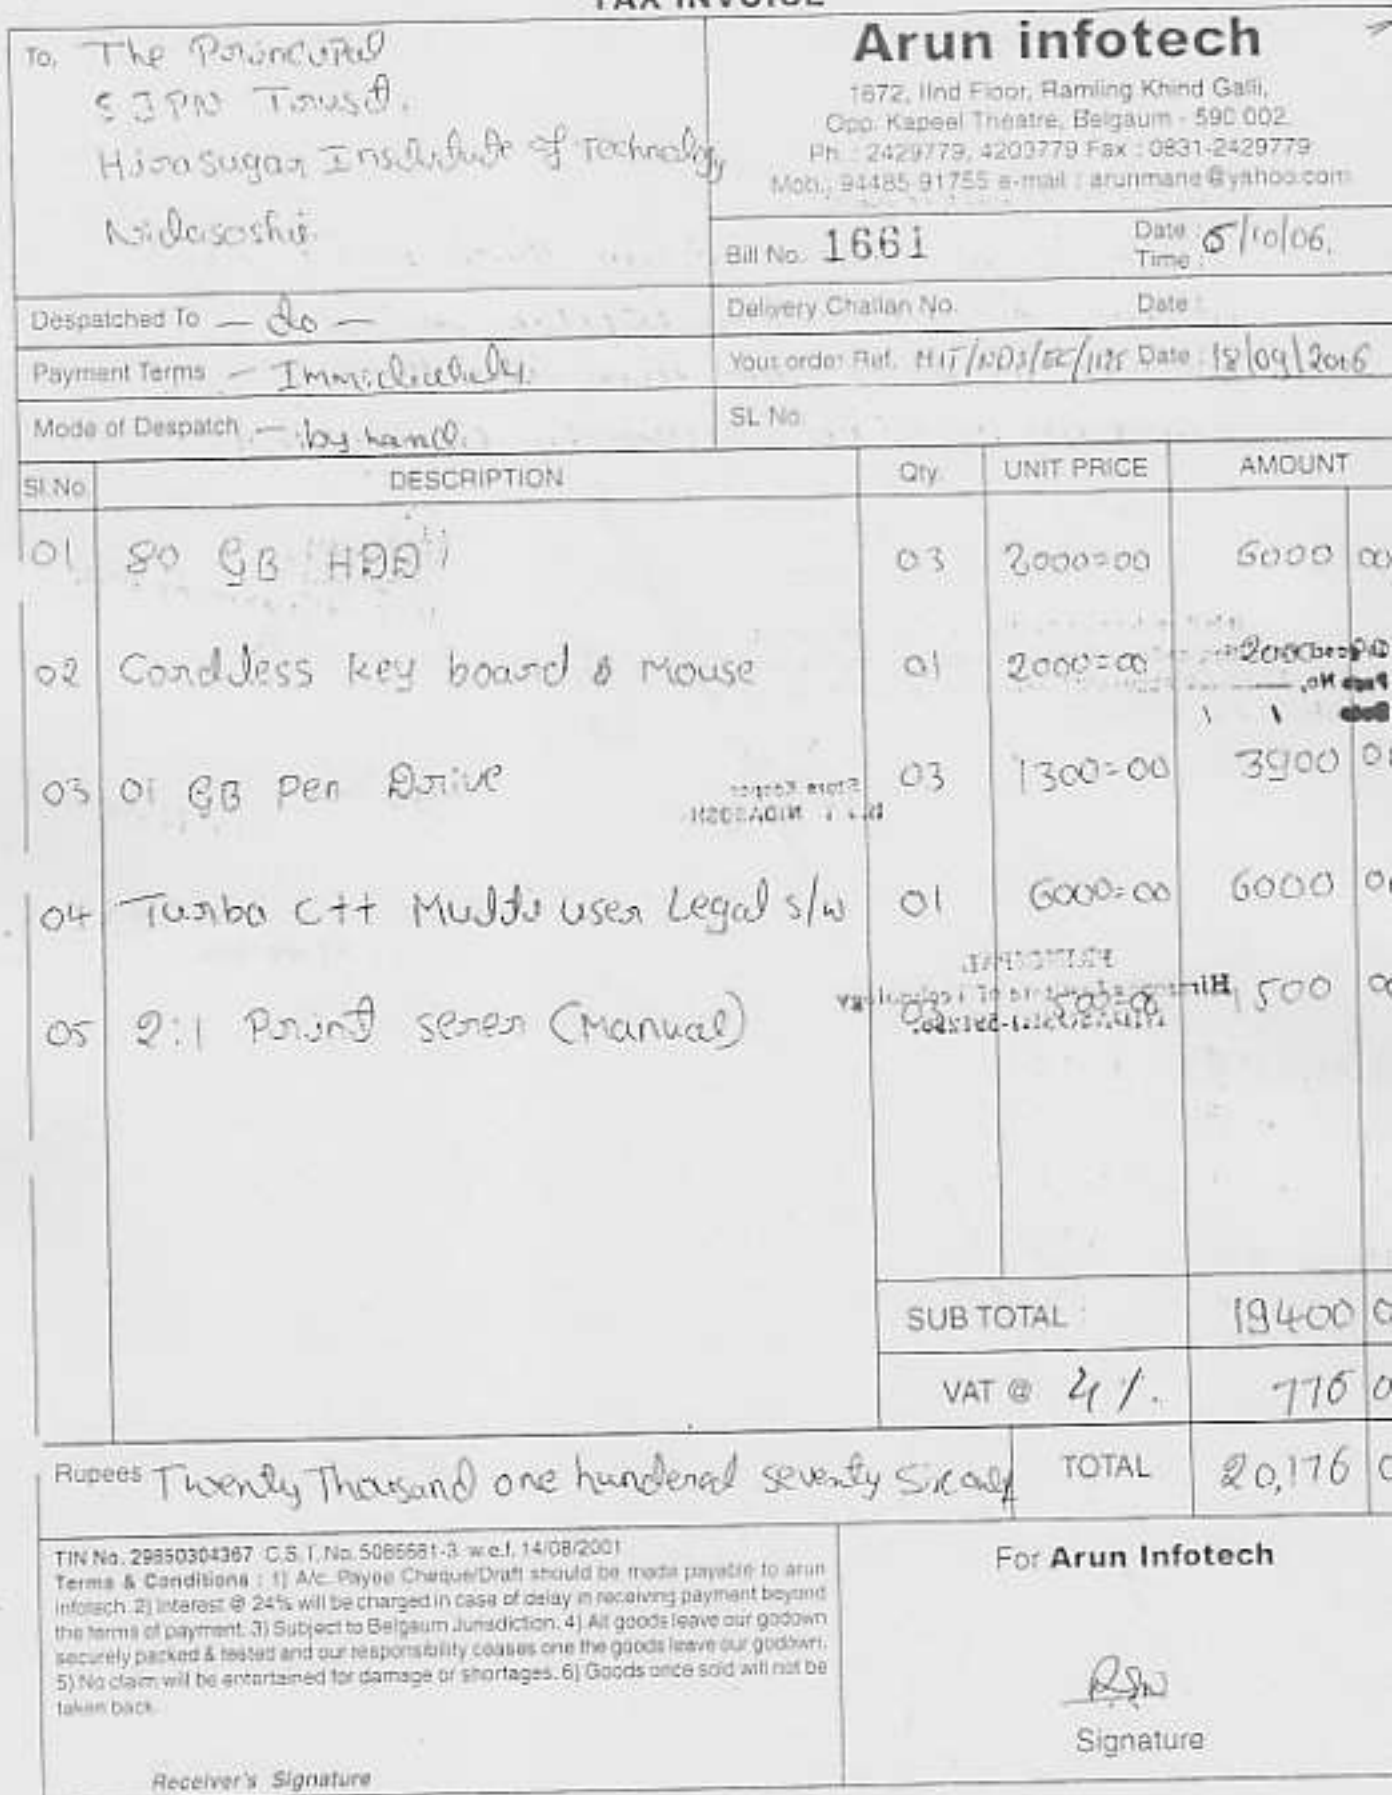 TAX INVOICE
To, The Principal
SJPN Trust.
Hirasugar Institute of Technology
Nidasoshi.
Arun infotech
1672, IInd Floor, Ramling Khind Galli,
Opp. Kapeel Theatre, Belgaum - 590 002.
Ph. : 2429779, 4209779 Fax : 0831-2429779
Mob.: 94485 91755 e-mail : arunmane@yahoo.com
Bill No. 1661
Date : 5/10/06,
Time :
Despatched To — do —
Delivery Challan No. Date :
Payment Terms — Immidietely.
Your order Ref. HIT/NDS/EC/ Date : 18/09/2006
Mode of Despatch — by hand.
SL No.
Sl.No. DESCRIPTION Qty. UNIT PRICE AMOUNT
01 80 GB HDD 03 2000=00 6000 00
02 Cordless key board & Mouse 01 2000=00 2000
03 01 GB Pen Drive 03 1300=00 3900 0
04 Turbo C++ Multi user Legal s/w 01 6000=00 6000 0
05 2:1 Print serer (Manual) 03 500=00 1500 0
SUB TOTAL 19400 0
VAT @ 4%. 776 0
Rupees Twenty Thousand one hundered seventy Six only TOTAL 20,176 0
TIN No. 29850304367 C.S.T. No. 5085681-3 w.e.f. 14/08/2001
Terms & Conditions : 1) A/c. Payee Cheque/Draft should be made payable to arun
infotech. 2) Interest @ 24% will be charged in case of delay in receiving payment beyond
the terms of payment. 3) Subject to Belgaum Jurisdiction. 4) All goods leave our godown
securely packed & tested and our responsibility ceases one the goods leave our godown.
5) No claim will be entertained for damage or shortages. 6) Goods once sold will not be
taken back.
Receiver's Signature
For Arun Infotech
Signature